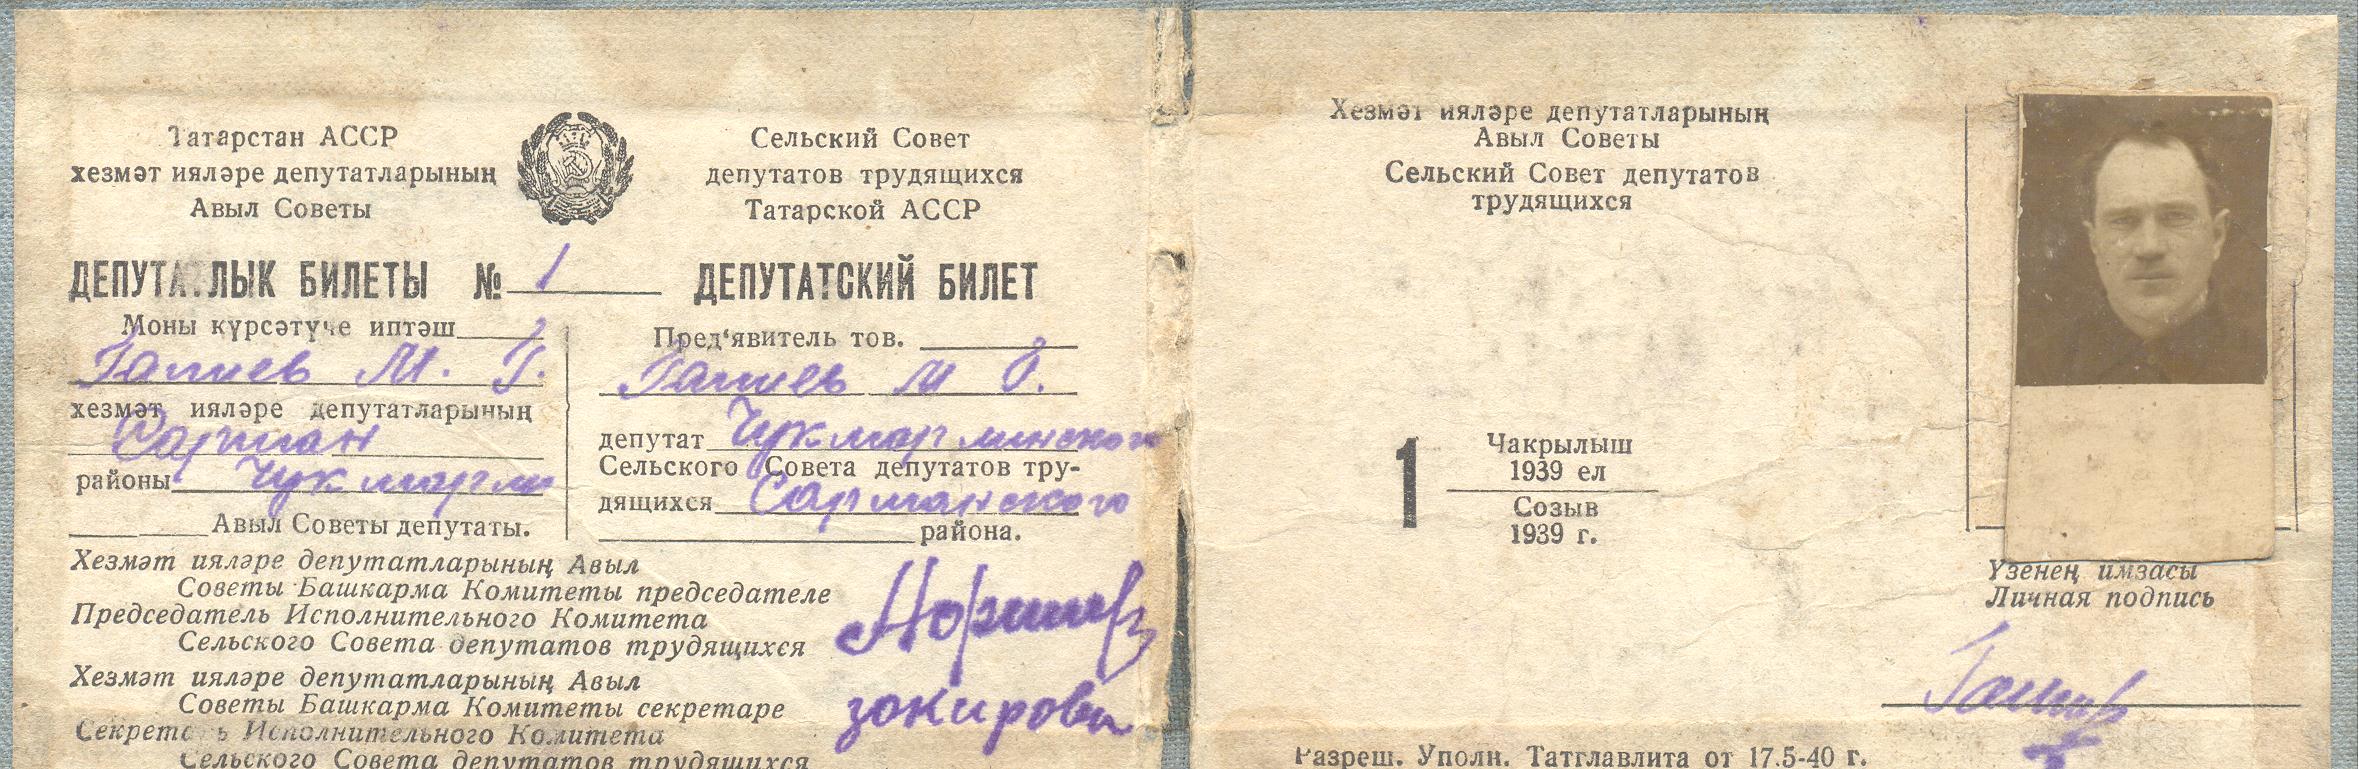 Татарстан АССР
хезмәт ияләре депутатларының
Авыл Советы
Сельский Совет
депутатов трудящихся
Татарской АССР
ДЕПУТАТЛЫК БИЛЕТЫ № 1
ДЕПУТАТСКИЙ БИЛЕТ
Моны күрсәтүче иптәш
Галиев М. Г.
хезмәт ияләре депутатларының
Сарман
районы Чукмарли
Авыл Советы депутаты.
Пред'явитель тов.
Галиев М Г.
депутат Чукмарлинского
Сельского Совета депутатов тру-
дящихся Сармановского
района.
Хезмәт ияләре депутатларының Авыл
Советы Башкарма Комитеты председателе
Председатель Исполнительного Комитета
Сельского Совета депутатов трудящихся
Хезмәт ияләре депутатларының Авыл
Советы Башкарма Комитеты секретаре
Секретарь Исполнительного Комитета
Сельского Совета депутатов трудящихся
Закирова
Хезмәт ияләре депутатларының
Авыл Советы
Сельский Совет депутатов
трудящихся
1
Чакрылыш
1939 ел
Созыв
1939 г.
Үзенең имзасы
Личная подпись
Разреш. Уполн. Татглавлита от 17.5-40 г.